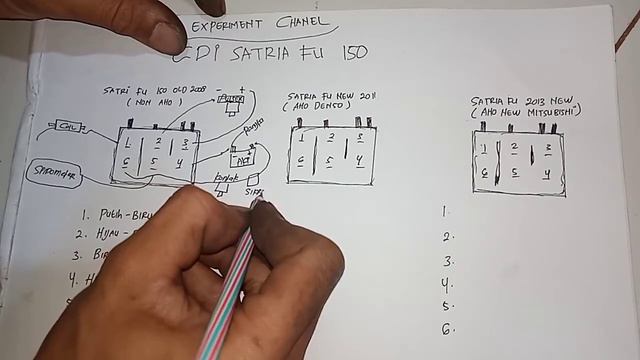 EXPERIMENT CHANEL
CDI SATRIA FU 150
SATRI FU 150 OLD 2008
(NON AHO)
- +
PULSER
COIL
1 2 3
6 5 4
SPIDOMETER
- AKI +
Kontak
SATRIA FU NEW 2011
(AHO DENSO)
1 2 3
6 5 4
SATRIA FU 2013 NEW
(AHO NEW MITSUBISHI)
1 2 3
6 5 4
1. Putih - BIRU
2. HIJAU -
3. BIR
4. H
1.
2.
3.
4.
5.
6.